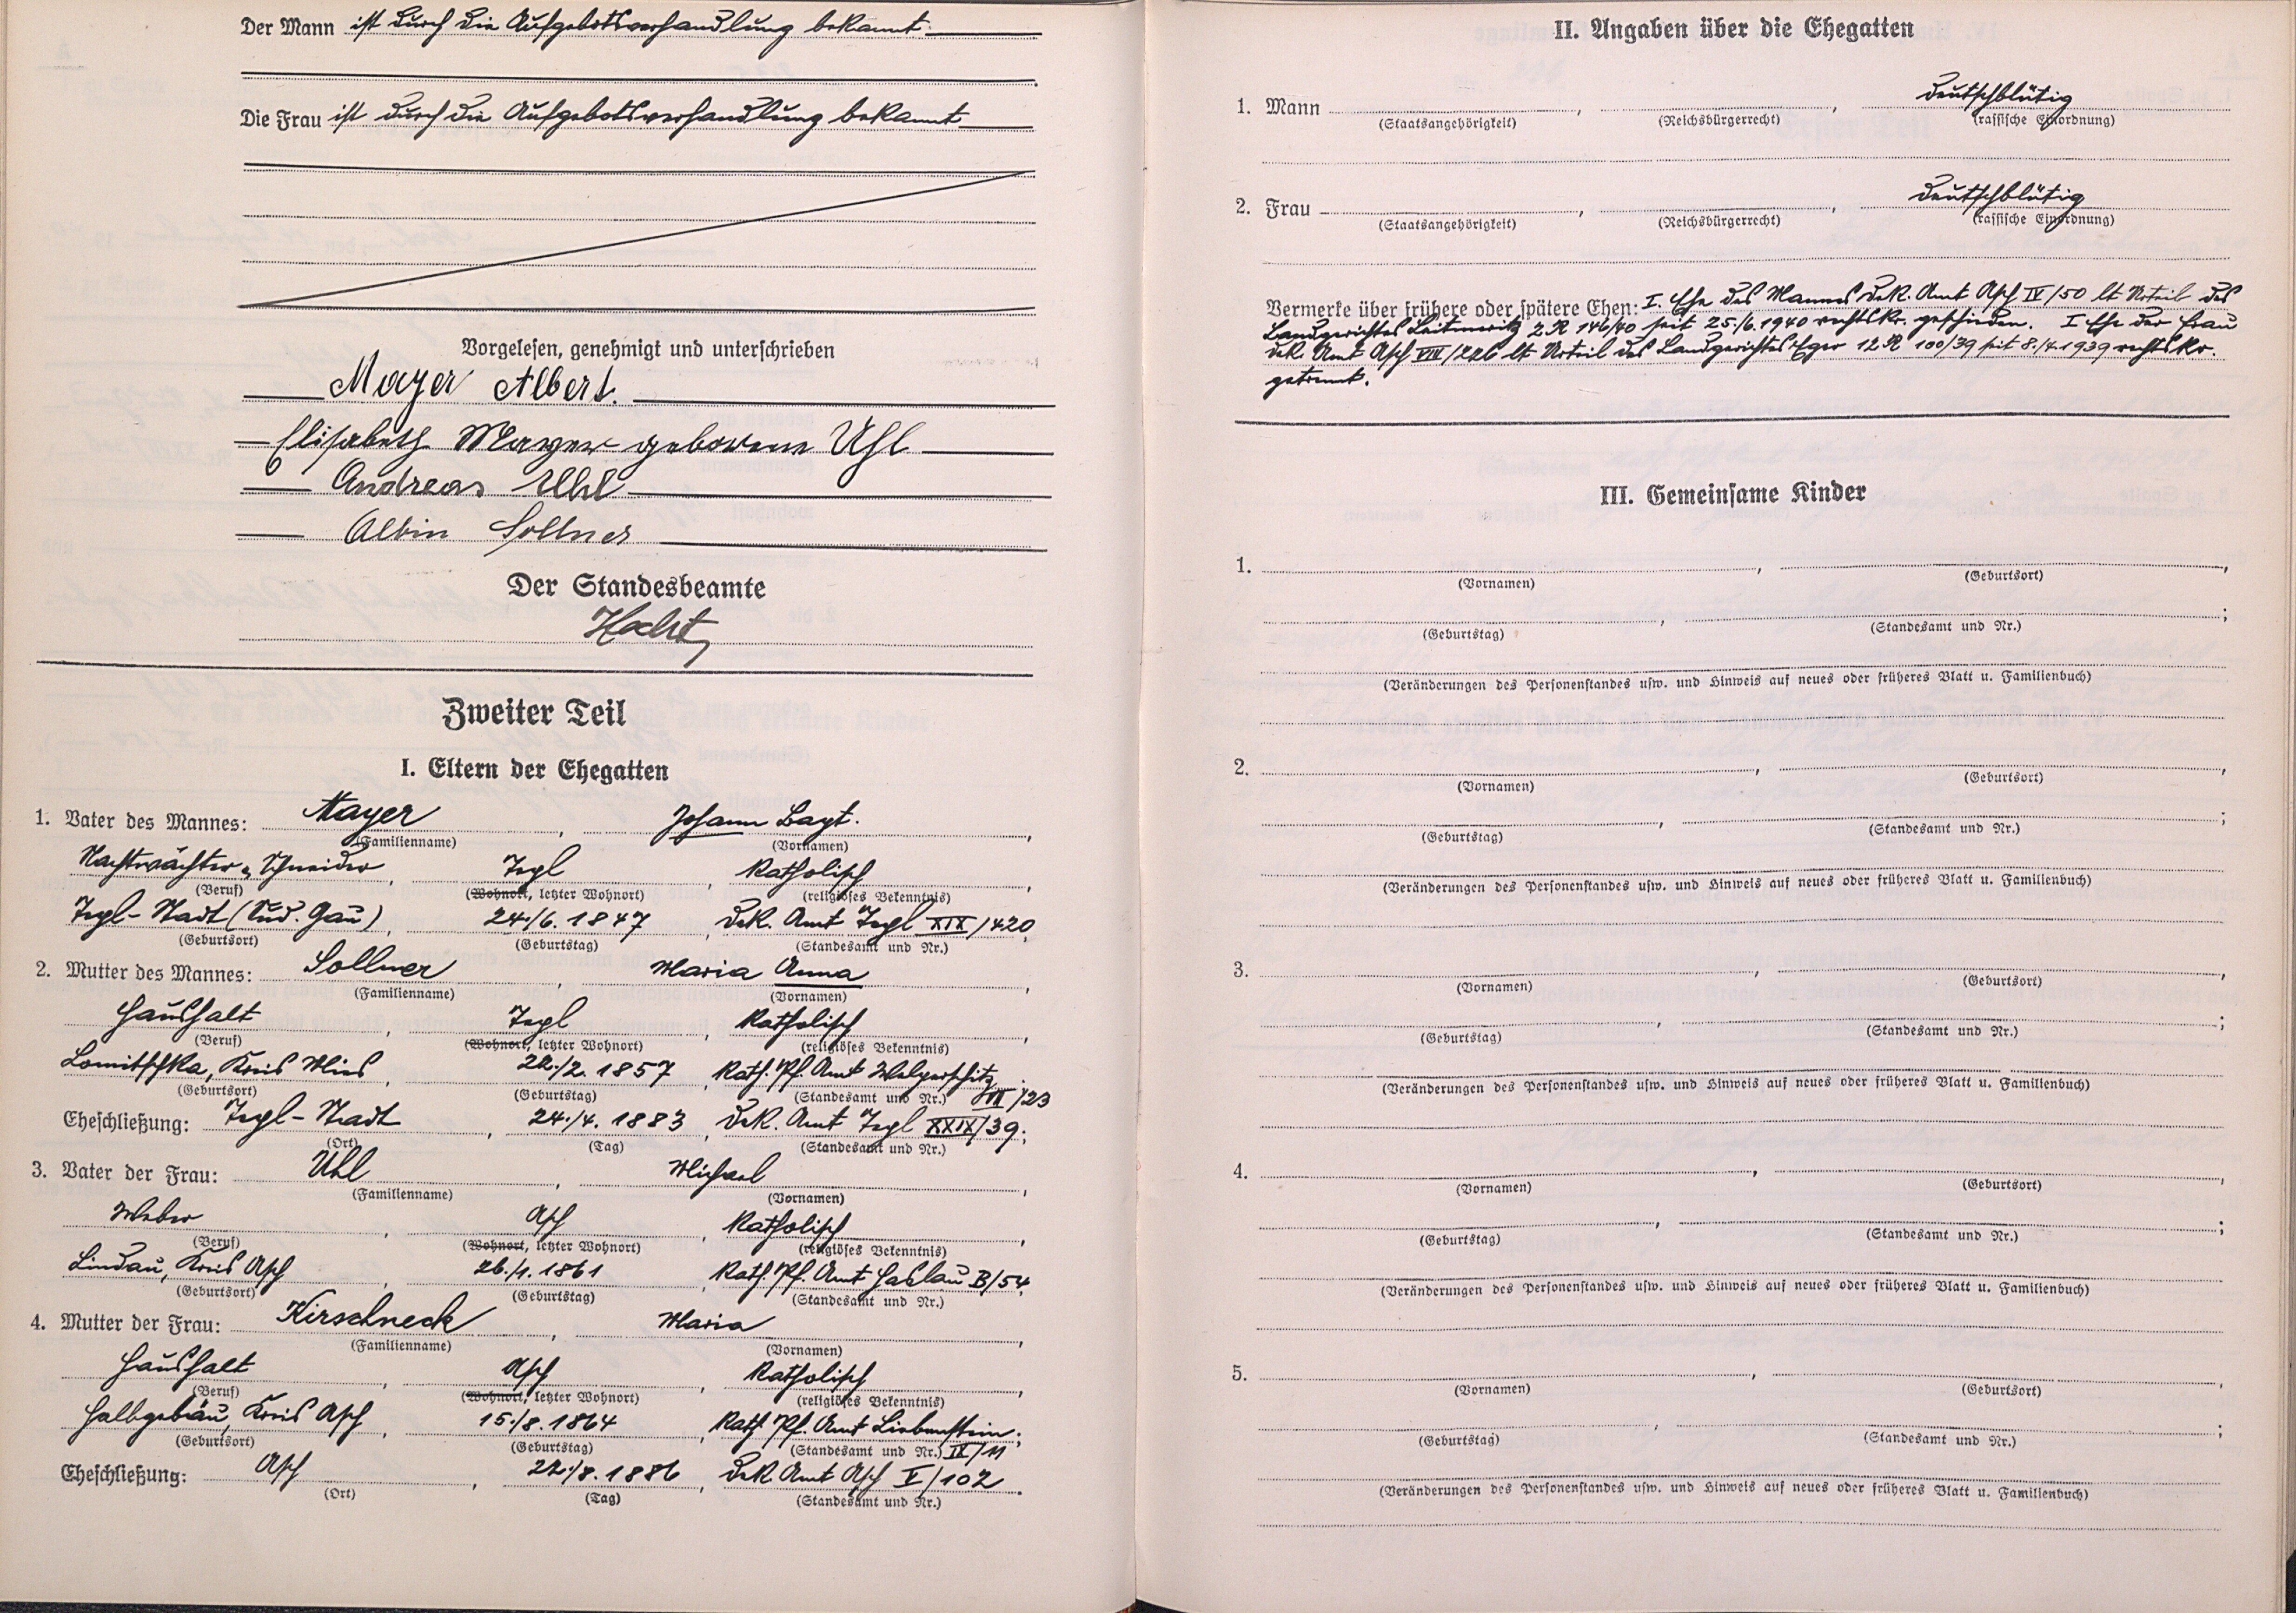 Der Mann ist durch die Aufgebotsverhandlung bekannt.
Die Frau ist durch die Aufgebotsverhandlung bekannt
Vorgelesen, genehmigt und unterschrieben
Mayer Albert.
Elisabeth Mayer geborene Uhl
Andreas Uhl
Albin Sollner
Der Standesbeamte
Zweiter Teil
I. Eltern der Ehegatten
1. Vater des Mannes: Mayer, Johann Bapt.,
(Familienname) (Vornamen)
Nachtwächter u. Schneider, Togl, katholisch,
(Beruf) (Wohnort, letzter Wohnort) (religiöses Bekenntnis)
-Stadt (Sud. Gau), 24./6. 1847, Dek. Amt XIX/420,
(Geburtsort) (Geburtstag) (Standesamt und Nr.)
2. Mutter des Mannes: Sollner, Maria Anna,
(Familienname) (Vornamen)
Haushalt, katholisch,
(Beruf) (Wohnort, letzter Wohnort) (religiöses Bekenntnis)
Lomitschka, Kreis Mies, 22./2. 1857, Kath. Pf. Amt
(Geburtsort) (Geburtstag) (Standesamt und Nr.) /23
Eheschließung: -Stadt, 24./4. 1883, Dek. Amt XXIX/39.;
(Ort) (Tag) (Standesamt und Nr.)
3. Vater der Frau: Uhl, Michael,
(Familienname) (Vornamen)
Weber, Asch, katholisch,
(Beruf) (Wohnort, letzter Wohnort) (religiöses Bekenntnis)
Lindau, Kreis Asch, 26./1. 1861, Kath. Pf. Amt Haslau B/54,
(Geburtsort) (Geburtstag) (Standesamt und Nr.)
4. Mutter der Frau: Kirschneck, Maria,
(Familienname) (Vornamen)
Haushalt, Asch, katholisch,
(Beruf) (Wohnort, letzter Wohnort) (religiöses Bekenntnis)
Halbgebäu, Kreis Asch, 15./8. 1864, Kath. Pf. Amt Liebenstein;
(Geburtsort) (Geburtstag) (Standesamt und Nr.) IX/11
Eheschließung: Asch, 22./8. 1886, Dek. Amt Asch V/102.
(Ort) (Tag) (Standesamt und Nr.)
II. Angaben über die Ehegatten
1. Mann , , deutschblütig
(Staatsangehörigkeit) (Reichsbürgerrecht) (rassische Einordnung)
2. Frau , , deutschblütig
(Staatsangehörigkeit) (Reichsbürgerrecht) (rassische Einordnung)
Vermerke über frühere oder spätere Ehen: I. Ehe des Mannes Dek. Amt Asch IV/50 lt Urteil des
Landgerichtes Leitmeritz 2 R 146/40 seit 25./6.1940 rechtskr. geschieden. I Ehe der Frau
Dek. Amt Asch VIII/226 lt Urteil des Landgerichtes Eger 12 R 100/39 seit 8./4.1939 rechtskr.
getrennt.
III. Gemeinsame Kinder
1. , ,
(Vornamen) (Geburtsort)
, ;
(Geburtstag) (Standesamt und Nr.)
(Veränderungen des Personenstandes usw. und Hinweis auf neues oder früheres Blatt u. Familienbuch)
2. , ,
(Vornamen) (Geburtsort)
, ;
(Geburtstag) (Standesamt und Nr.)
(Veränderungen des Personenstandes usw. und Hinweis auf neues oder früheres Blatt u. Familienbuch)
3. , ,
(Vornamen) (Geburtsort)
, ;
(Geburtstag) (Standesamt und Nr.)
(Veränderungen des Personenstandes usw. und Hinweis auf neues oder früheres Blatt u. Familienbuch)
4. , ,
(Vornamen) (Geburtsort)
, ;
(Geburtstag) (Standesamt und Nr.)
(Veränderungen des Personenstandes usw. und Hinweis auf neues oder früheres Blatt u. Familienbuch)
5. , ,
(Vornamen) (Geburtsort)
, ;
(Geburtstag) (Standesamt und Nr.)
(Veränderungen des Personenstandes usw. und Hinweis auf neues oder früheres Blatt u. Familienbuch)